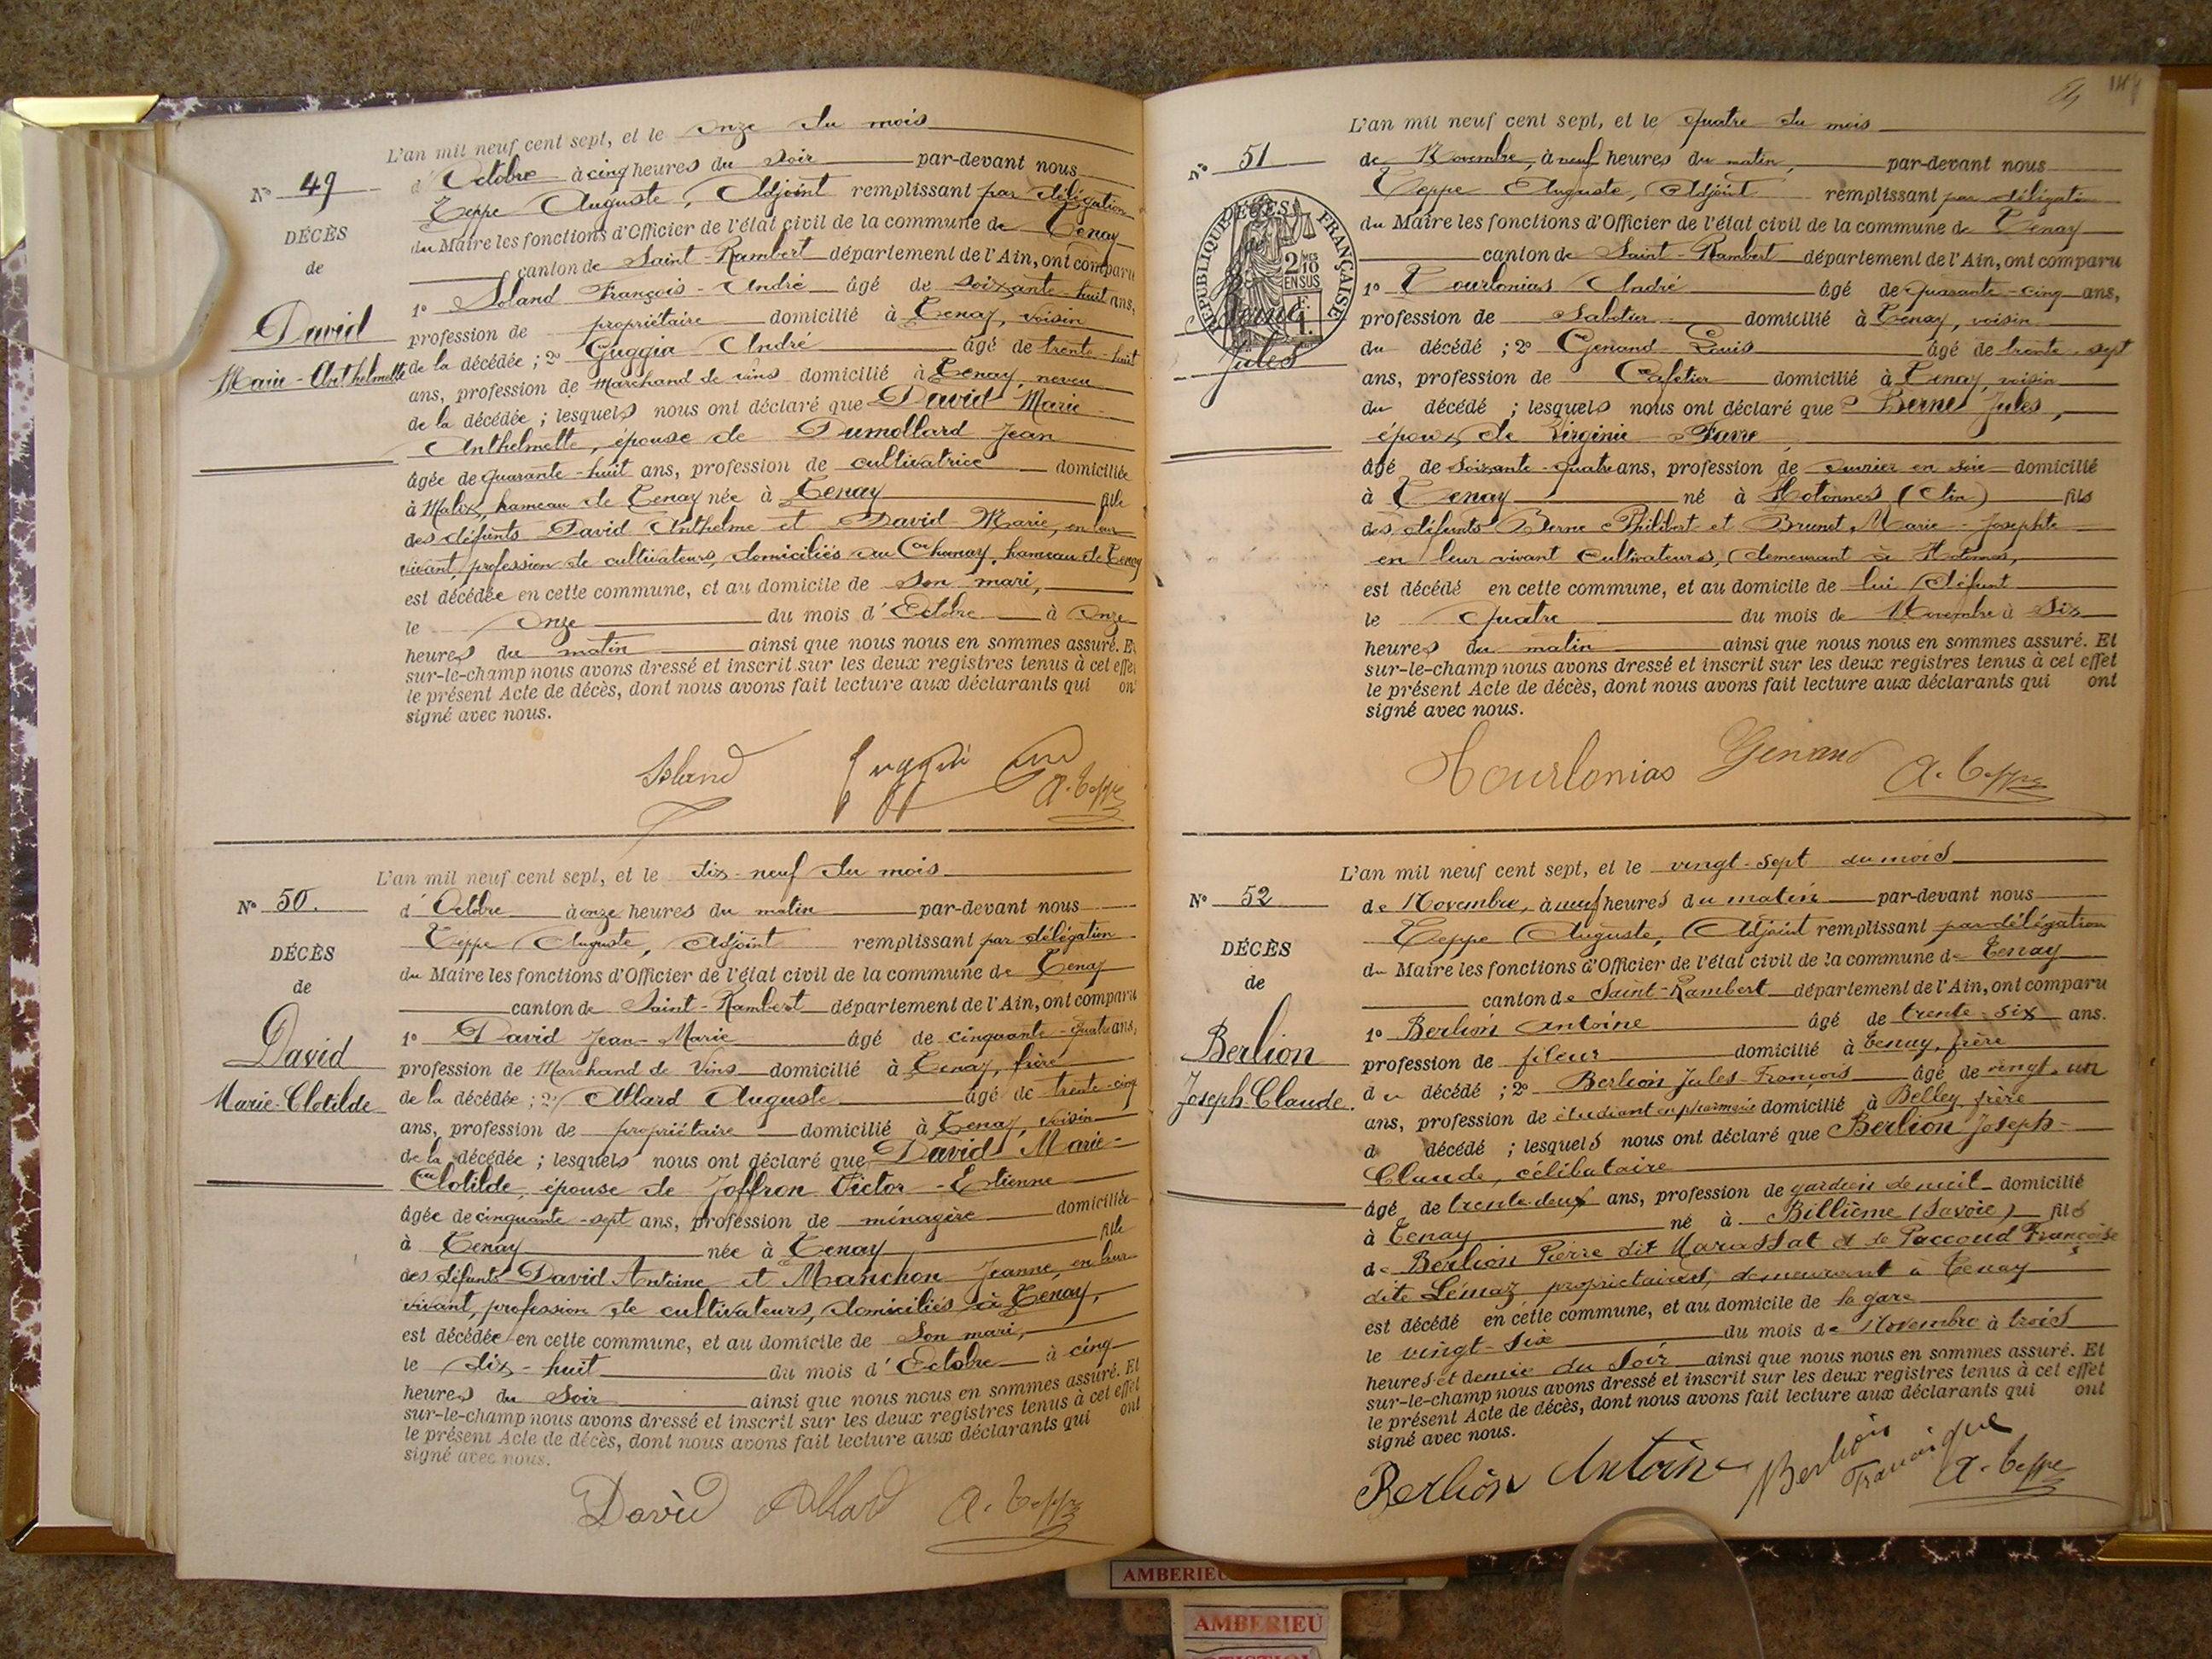 L'an mil neuf cent sept, et le onze du mois
N° 49
d'Octobre à cinq heures du soir par-devant nous
Teppe Auguste, Adjoint remplissant par délégation
DÉCÈS
du Maire les fonctions d'Officier de l'état civil de la commune de Tenay
de
canton de Saint-Rambert département de l'Ain, ont comparu
1° Soland François-André âgé de soixante-huit ans,
David
profession de propriétaire domicilié à Tenay, voisin
Marie-Anthelmette
de la décédée ; 2° Guggia André âgé de trente-huit
ans, profession de Marchand de vins domicilié à Tenay, neveu
de la décédée ; lesquels nous ont déclaré que David Marie-
Anthelmette, épouse de Dumollard Jean
âgée de quarante-huit ans, profession de cultivatrice domiciliée
à Malix, hameau de Tenay née à Tenay fille
des défunts David Anthelme et David Marie, en leur
vivant, profession de cultivateurs, domiciliés au Charnay, hameau de Tenay
est décédée en cette commune, et au domicile de son mari,
le onze du mois d'Octobre à onze
heures du matin ainsi que nous nous en sommes assuré. Et
sur-le-champ nous avons dressé et inscrit sur les deux registres tenus à cet effet
le présent Acte de décès, dont nous avons fait lecture aux déclarants qui ont
signé avec nous.
Soland Guggia A. Teppe
L'an mil neuf cent sept, et le dix-neuf du mois
N° 50.
d'Octobre à onze heures du matin par-devant nous
Teppe Auguste, Adjoint remplissant par délégation
DÉCÈS
du Maire les fonctions d'Officier de l'état civil de la commune de Tenay
de
canton de Saint-Rambert département de l'Ain, ont comparu
1° David Jean-Marie âgé de cinquante-quatre ans,
David
profession de Marchand de Vins domicilié à Tenay, frère
Marie-Clotilde
de la décédée ; 2° Allard Auguste âgé de trente-cinq
ans, profession de propriétaire domicilié à Tenay, voisin
de la décédée ; lesquels nous ont déclaré que David Marie-
Clotilde, épouse de Joffron Victor-Etienne
âgée de cinquante-sept ans, profession de ménagère domiciliée
à Tenay née à Tenay fille
des défunts David Antoine et Manchon Jeanne, en leur
vivant, profession de cultivateurs, domiciliés à Tenay,
est décédée en cette commune, et au domicile de son mari,
le dix-huit du mois d'Octobre à cinq
heures du Soir ainsi que nous nous en sommes assuré. Et
sur-le-champ nous avons dressé et inscrit sur les deux registres tenus à cet effet
le présent Acte de décès, dont nous avons fait lecture aux déclarants qui ont
signé avec nous.
David Allard A. Teppe
L'an mil neuf cent sept, et le quatre du mois
N° 51
de Novembre, à neuf heures du matin, par-devant nous
Teppe Auguste, Adjoint remplissant par délégation
DÉCÈS
RÉPUBLIQUE FRANÇAISE
2/10 EN SUS
du Maire les fonctions d'Officier de l'état civil de la commune de Tenay
canton de Saint-Rambert département de l'Ain, ont comparu
1° Tourlonias André âgé de quarante-cinq ans,
Berne
profession de Sabotier domicilié à Tenay, voisin
Jules
du décédé ; 2° Genand Louis âgé de trente-sept
ans, profession de Cafetier domicilié à Tenay, voisin
du décédé ; lesquels nous ont déclaré que Berne Jules,
époux de Virginie Favre
âgé de soixante-quatre ans, profession de ouvrier en soie domicilié
à Tenay né à Hotonnes (Ain) fils
des défunts Berne Philibert et Brunet Marie-Josephte
en leur vivant Cultivateurs, demeurant à Hotonnes,
est décédé en cette commune, et au domicile de lui défunt
le quatre du mois de Novembre à six
heures du matin ainsi que nous nous en sommes assuré. Et
sur-le-champ nous avons dressé et inscrit sur les deux registres tenus à cet effet
le présent Acte de décès, dont nous avons fait lecture aux déclarants qui ont
signé avec nous.
Tourlonias Genand A. Teppe
L'an mil neuf cent sept, et le vingt-sept du mois
N° 52
de Novembre, à neuf heures du matin par-devant nous
Teppe Auguste, Adjoint remplissant par délégation
DÉCÈS
du Maire les fonctions d'Officier de l'état civil de la commune de Tenay
de
canton de Saint-Rambert département de l'Ain, ont comparu
1° Berlion Antoine âgé de trente-six ans.
Berlion
profession de fileur domicilié à Tenay, frère
Joseph-Claude.
du décédé ; 2° Berlion Jules-François âgé de vingt-un
ans, profession de étudiant en pharmacie domicilié à Belley frère
d décédé ; lesquels nous ont déclaré que Berlion Joseph-
Claude, célibataire
âgé de trente-deux ans, profession de gardien de nuit domicilié
à Tenay né à Billième (Savoie) fils
de Berlion Pierre dit Marassat et de Paccoud Françoise
dite Lémaz propriétaires, demeurant à Tenay
est décédé en cette commune, et au domicile de la gare
le vingt-six du mois de Novembre à trois
heures et demie du Soir ainsi que nous nous en sommes assuré. Et
sur-le-champ nous avons dressé et inscrit sur les deux registres tenus à cet effet
le présent Acte de décès, dont nous avons fait lecture aux déclarants qui ont
signé avec nous.
Berlion Antoine Berlion A. Teppe
AMBERIEU
AMBERIEU